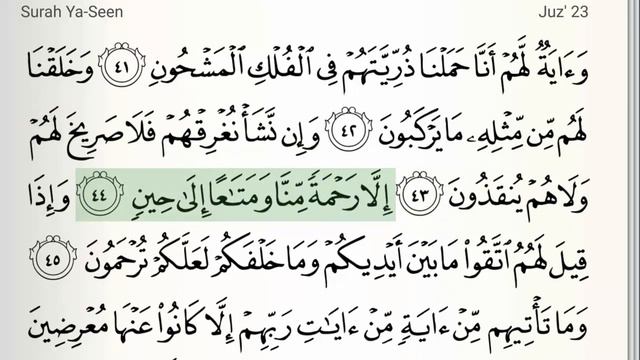 Surah Ya-Seen Juz' 23
وَءَايَةٌ لَّهُمْ أَنَّا حَمَلْنَا ذُرِّيَّتَهُمْ فِى ٱلْفُلْكِ ٱلْمَشْحُونِ ٤١ وَخَلَقْنَا
لَهُم مِّن مِّثْلِهِۦ مَا يَرْكَبُونَ ٤٢ وَإِن نَّشَأْ نُغْرِقْهُمْ فَلَا صَرِيخَ لَهُمْ
وَلَا هُمْ يُنقَذُونَ ٤٣ إِلَّا رَحْمَةً مِّنَّا وَمَتَـٰعًا إِلَىٰ حِينٍ ٤٤ وَإِذَا
قِيلَ لَهُمُ ٱتَّقُوا۟ مَا بَيْنَ أَيْدِيكُمْ وَمَا خَلْفَكُمْ لَعَلَّكُمْ تُرْحَمُونَ ٤٥
وَمَا تَأْتِيهِم مِّنْ ءَايَةٍ مِّنْ ءَايَـٰتِ رَبِّهِمْ إِلَّا كَانُوا۟ عَنْهَا مُعْرِضِينَ